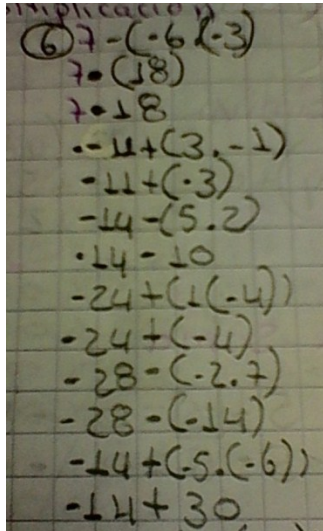 ⑥ 7-(-6(-3)
7-(18)
7-18
-11+(3.-1)
-11+(-3)
-14-(5.2)
-14-10
-24+(1(-4))
-24+(-4)
-28-(-2.7)
-28-(-14)
-14+(-5.(-6))
-14+30